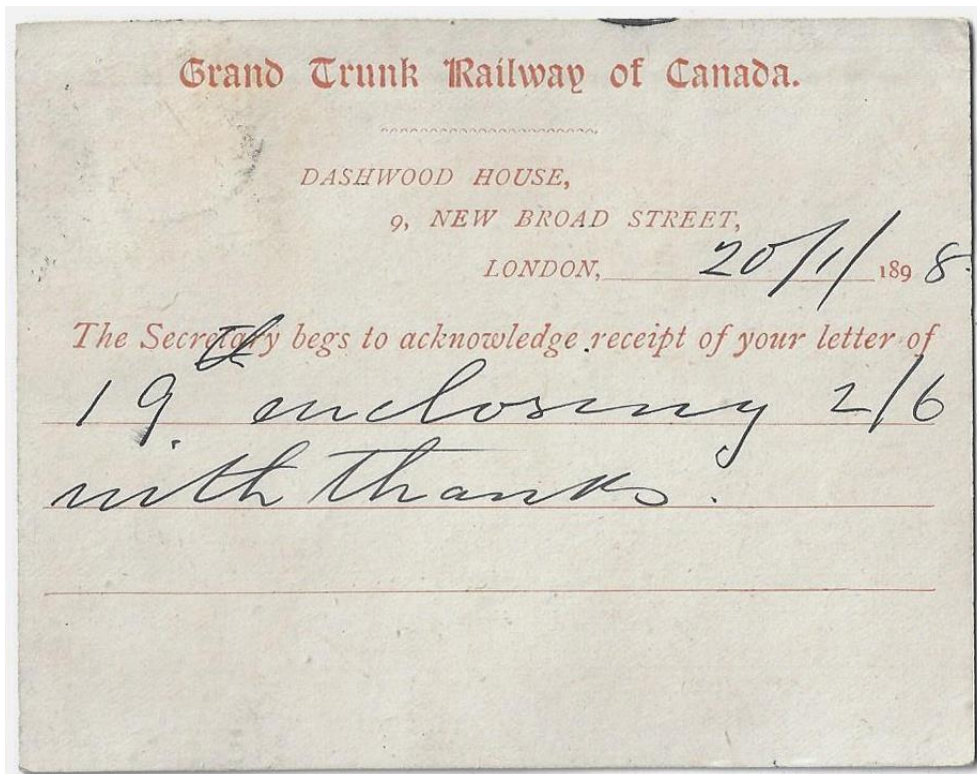 Grand Trunk Railway of Canada.
DASHWOOD HOUSE,
9, NEW BROAD STREET,
LONDON, 20/1/ 1898.
The Secretary begs to acknowledge receipt of your letter of
19th enclosing 2/6
with thanks.